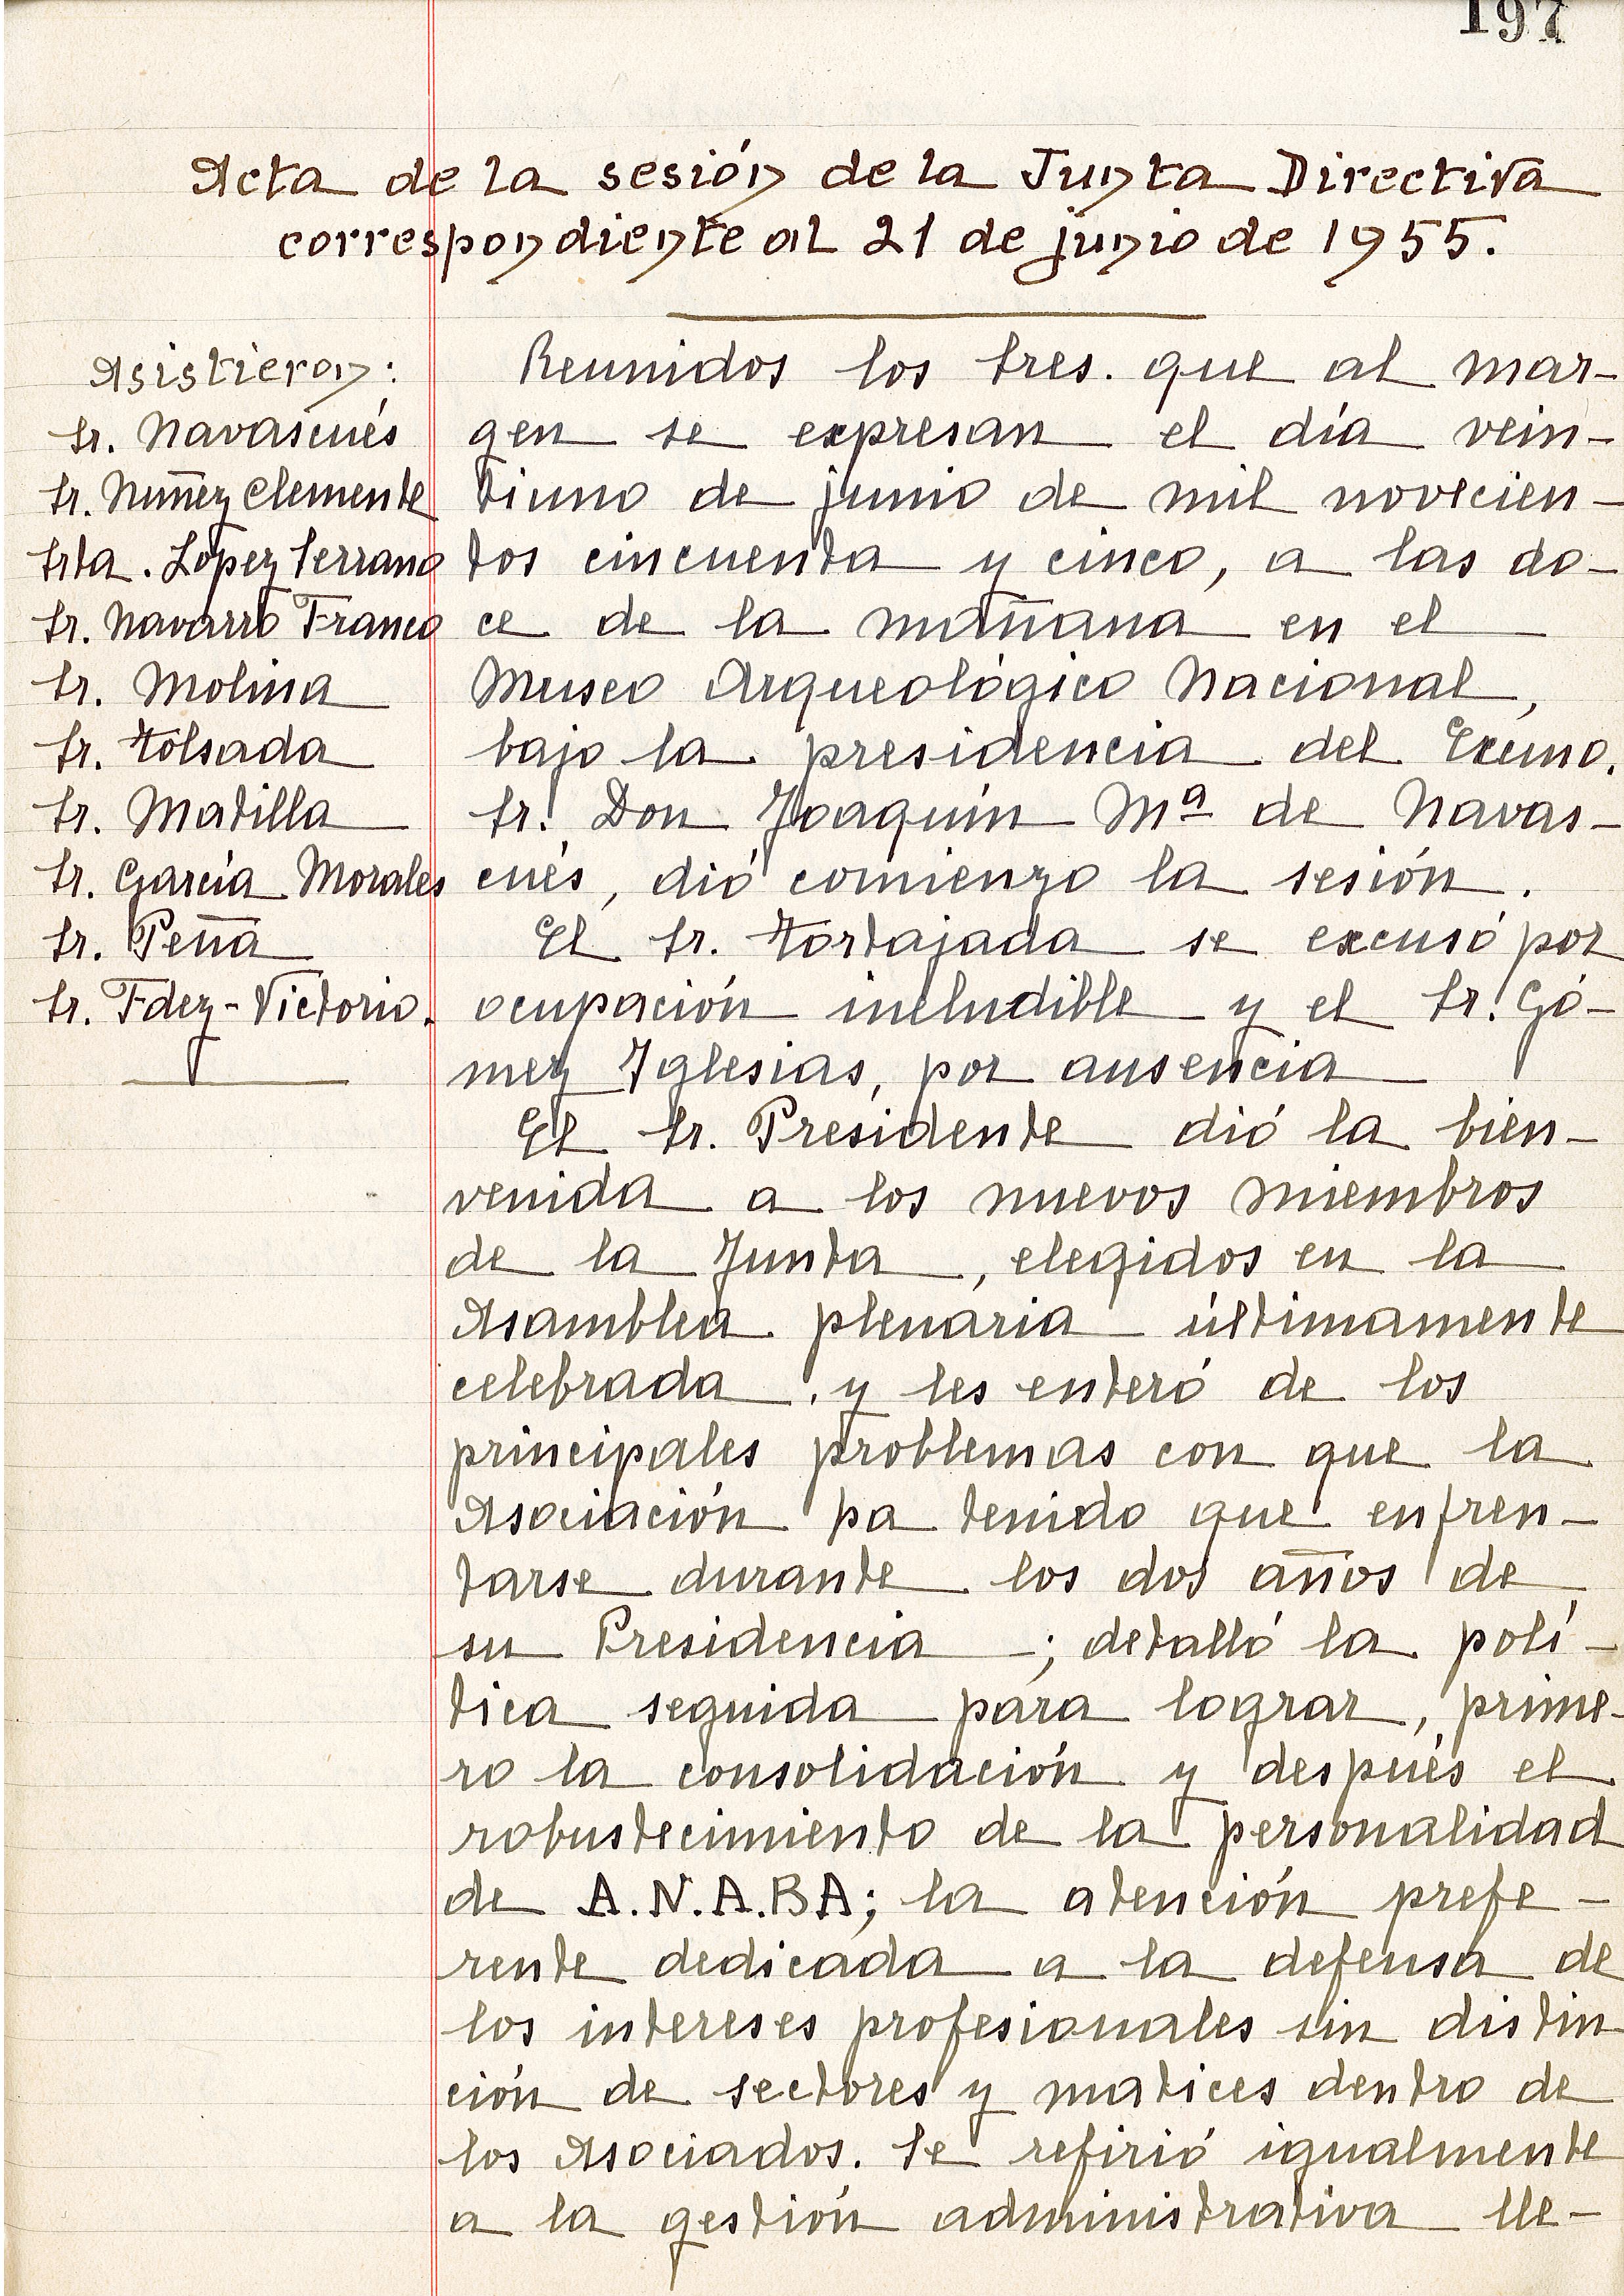 197
Acta de la sesión de la Junta Directiva
correspondiente al 21 de junio de 1955.
Asistieron:
Sr. Navascués
Sr. Nuñez Clemente
Srta. López Serrano
Sr. Navarro Franco
Sr. Molina
Sr. Tolsada
Sr. Matilla
Sr. García Morales
Sr. Peña
Sr. Fdez-Victorio.
Reunidos los Sres. que al mar-
gen se expresan el día vein-
tiuno de junio de mil novecien-
tos cincuenta y cinco, a las do-
ce de la mañana en el
Museo Arqueológico Nacional,
bajo la presidencia del Excmo.
Sr. Don Joaquín Mª de Navas-
cués, dió comienzo la sesión.
El Sr. Tortajada se excusó por
ocupación ineludible y el Sr. Gó-
mez Iglesias, por ausencia
El Sr. Presidente dió la bien-
venida a los nuevos miembros
de la Junta, elegidos en la
Asamblea plenaria últimamente
celebrada, y les enteró de los
principales problemas con que la
Asociación ha tenido que enfren-
tarse durante los dos años de
su Presidencia; detalló la polí-
tica seguida para lograr, prime-
ro la consolidación y después el
robustecimiento de la personalidad
de A.N.A.BA; la atención prefe-
rente dedicada a la defensa de
los intereses profesionales sin distin
ción de sectores y matices dentro de
los Asociados. Se refirió igualmente
a la gestión administrativa lle-